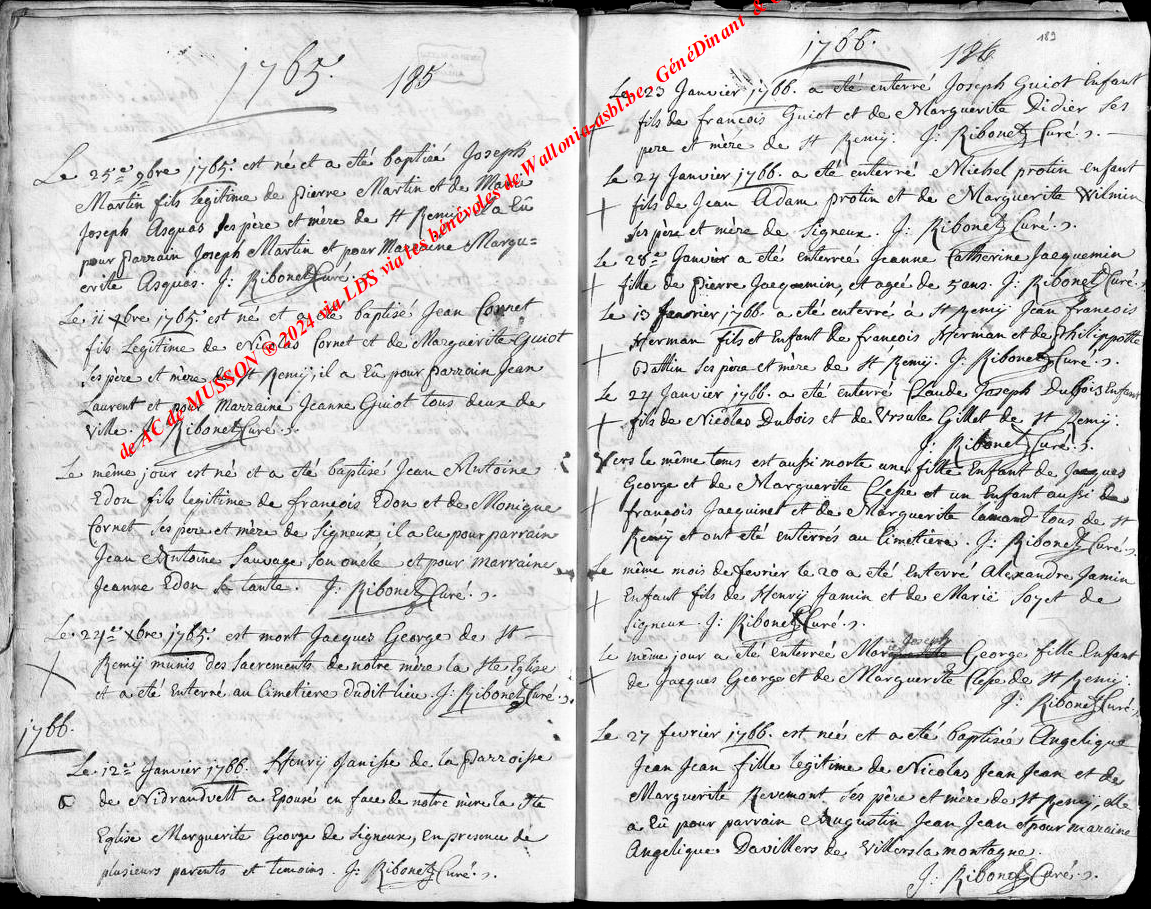 1765. 185
Le 25e 9bre 1765. est né et a été baptisé Joseph
Martin fils legitime de pierre Martin et de Marie
Joseph Asquas ses père et mère de St Remij il a Eû
pour parrain Joseph Martin et pour Marraine Margu=
erite Asquas. J: Ribonet Curé.
Le 11 xbre 1765. est né et a été baptisé Jean Cornet
fils Legitime de Nicolas Cornet et de Marguerite Guiot
ses père et mère de St Remij, il a Eû pour parrain Jean
Laurent et pour Marraine Jeanne Guiot tous deux de
Ville. J: Ribonet Curé.
Le même jour est né et a été baptisé Jean Antoine
Edon fils legitime de francois Edon et de Monique
Cornet ses pere et mère de Signeux il a Eu pour parrain
Jean Antoine Sauvage son oncle et pour marraine
Jeanne Edon sa tante. J: Ribonet Curé.
Le 24e xbre 1765. est mort Jacques George de St
Remij munis des Sacrements de notre mère la Ste Eglise
et a été Enterré au Cimetiere dudit lieu. J: Ribonet Curé.
1766.
Le 12e Janvier 1766. Henrij Janisse de la parroisse
de Nidrandvelt a Epousé en face de notre mère la Ste
Eglise Marguerite George de Signeux, en presence de
plusieurs parents et temoins. J: Ribonet Curé.
1766. 186 189
Le 23 Janvier 1766. a été enterré Joseph Guiot Enfant
fils de francois Guiot et de Marguerite Didier ses
pere et mère de St Remij. J: Ribonet Curé.
Le 24 Janvier 1766. a été enterré Michel protin enfant
fils de Jean Adam protin et de Marguerite Wilmin
ses père et mère de Signeux. J: Ribonet Curé.
Le 28e Janvier a été enterrée Jeanne Catherine Jacquemin
fille de pierre Jacquemin, et agée de 5 ans. J: Ribonet Curé.
Le 13 fevrier 1766. a été enterré à St Remij Jean francois
Herman fils et Enfant de francois Herman et de philippotte
Dattin ses père et mere de St Remij. J: Ribonet Curé.
Le 24 Janvier 1766. a été enterré Claude Joseph Dubois Enfant
fils de Nicolas Dubois et de Ursule Gillet de St Remij.
J: Ribonet Curé.
Vers le même tems est aussi morte une fille Enfant de Jacques
George et de Marguerite Clesse et un Enfant aussi de
francois Jacquinet et de Marguerite lamand tous de St
Remij et ont été enterrés au Cimetière. J: Ribonet Curé.
Le même mois de fevrier le 20 a été Enterré Alexandre Jamin
Enfant fils de Henrij Jamin et de Marie Soyet de
Signeux. J: Ribonet Curé.
Joseph
Le même jour a été enterrée Marguerite George fille Enfant
de Jacques George et de Marguerite Clesse de St Remij.
J: Ribonet Curé.
Le 27 fevrier 1766. est née et a été baptisée Angelique
Jean Jean fille legitime de Nicolas Jean Jean et de
Marguerite Revemont ses père et mère de St Remij, elle
a Eû pour parrain Augustin Jean Jean et pour maraine
Angelique Davillers de Villers la montagne.
J: Ribonet Curé.
de AC de MUSSON ® 2024 via LDS via les bénévoles de Wallonia-asbl.be, GénéDinant &